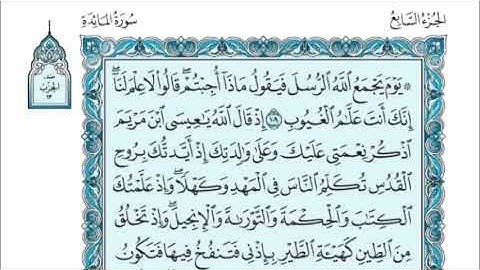 الجزء السابع
سورة المائدة
نصف الحزب ١٣
۞ يَوْمَ يَجْمَعُ اللَّهُ الرُّسُلَ فَيَقُولُ مَاذَا أُجِبْتُمْ قَالُوا لَا عِلْمَ لَنَا
إِنَّكَ أَنتَ عَلَّامُ الْغُيُوبِ ١٠٩ إِذْ قَالَ اللَّهُ يَا عِيسَى ابْنَ مَرْيَمَ
اذْكُرْ نِعْمَتِي عَلَيْكَ وَعَلَىٰ وَالِدَتِكَ إِذْ أَيَّدتُّكَ بِرُوحِ
الْقُدُسِ تُكَلِّمُ النَّاسَ فِي الْمَهْدِ وَكَهْلًا وَإِذْ عَلَّمْتُكَ
الْكِتَابَ وَالْحِكْمَةَ وَالتَّوْرَاةَ وَالْإِنجِيلَ وَإِذْ تَخْلُقُ
مِنَ الطِّينِ كَهَيْئَةِ الطَّيْرِ بِإِذْنِي فَتَنفُخُ فِيهَا فَتَكُونُ